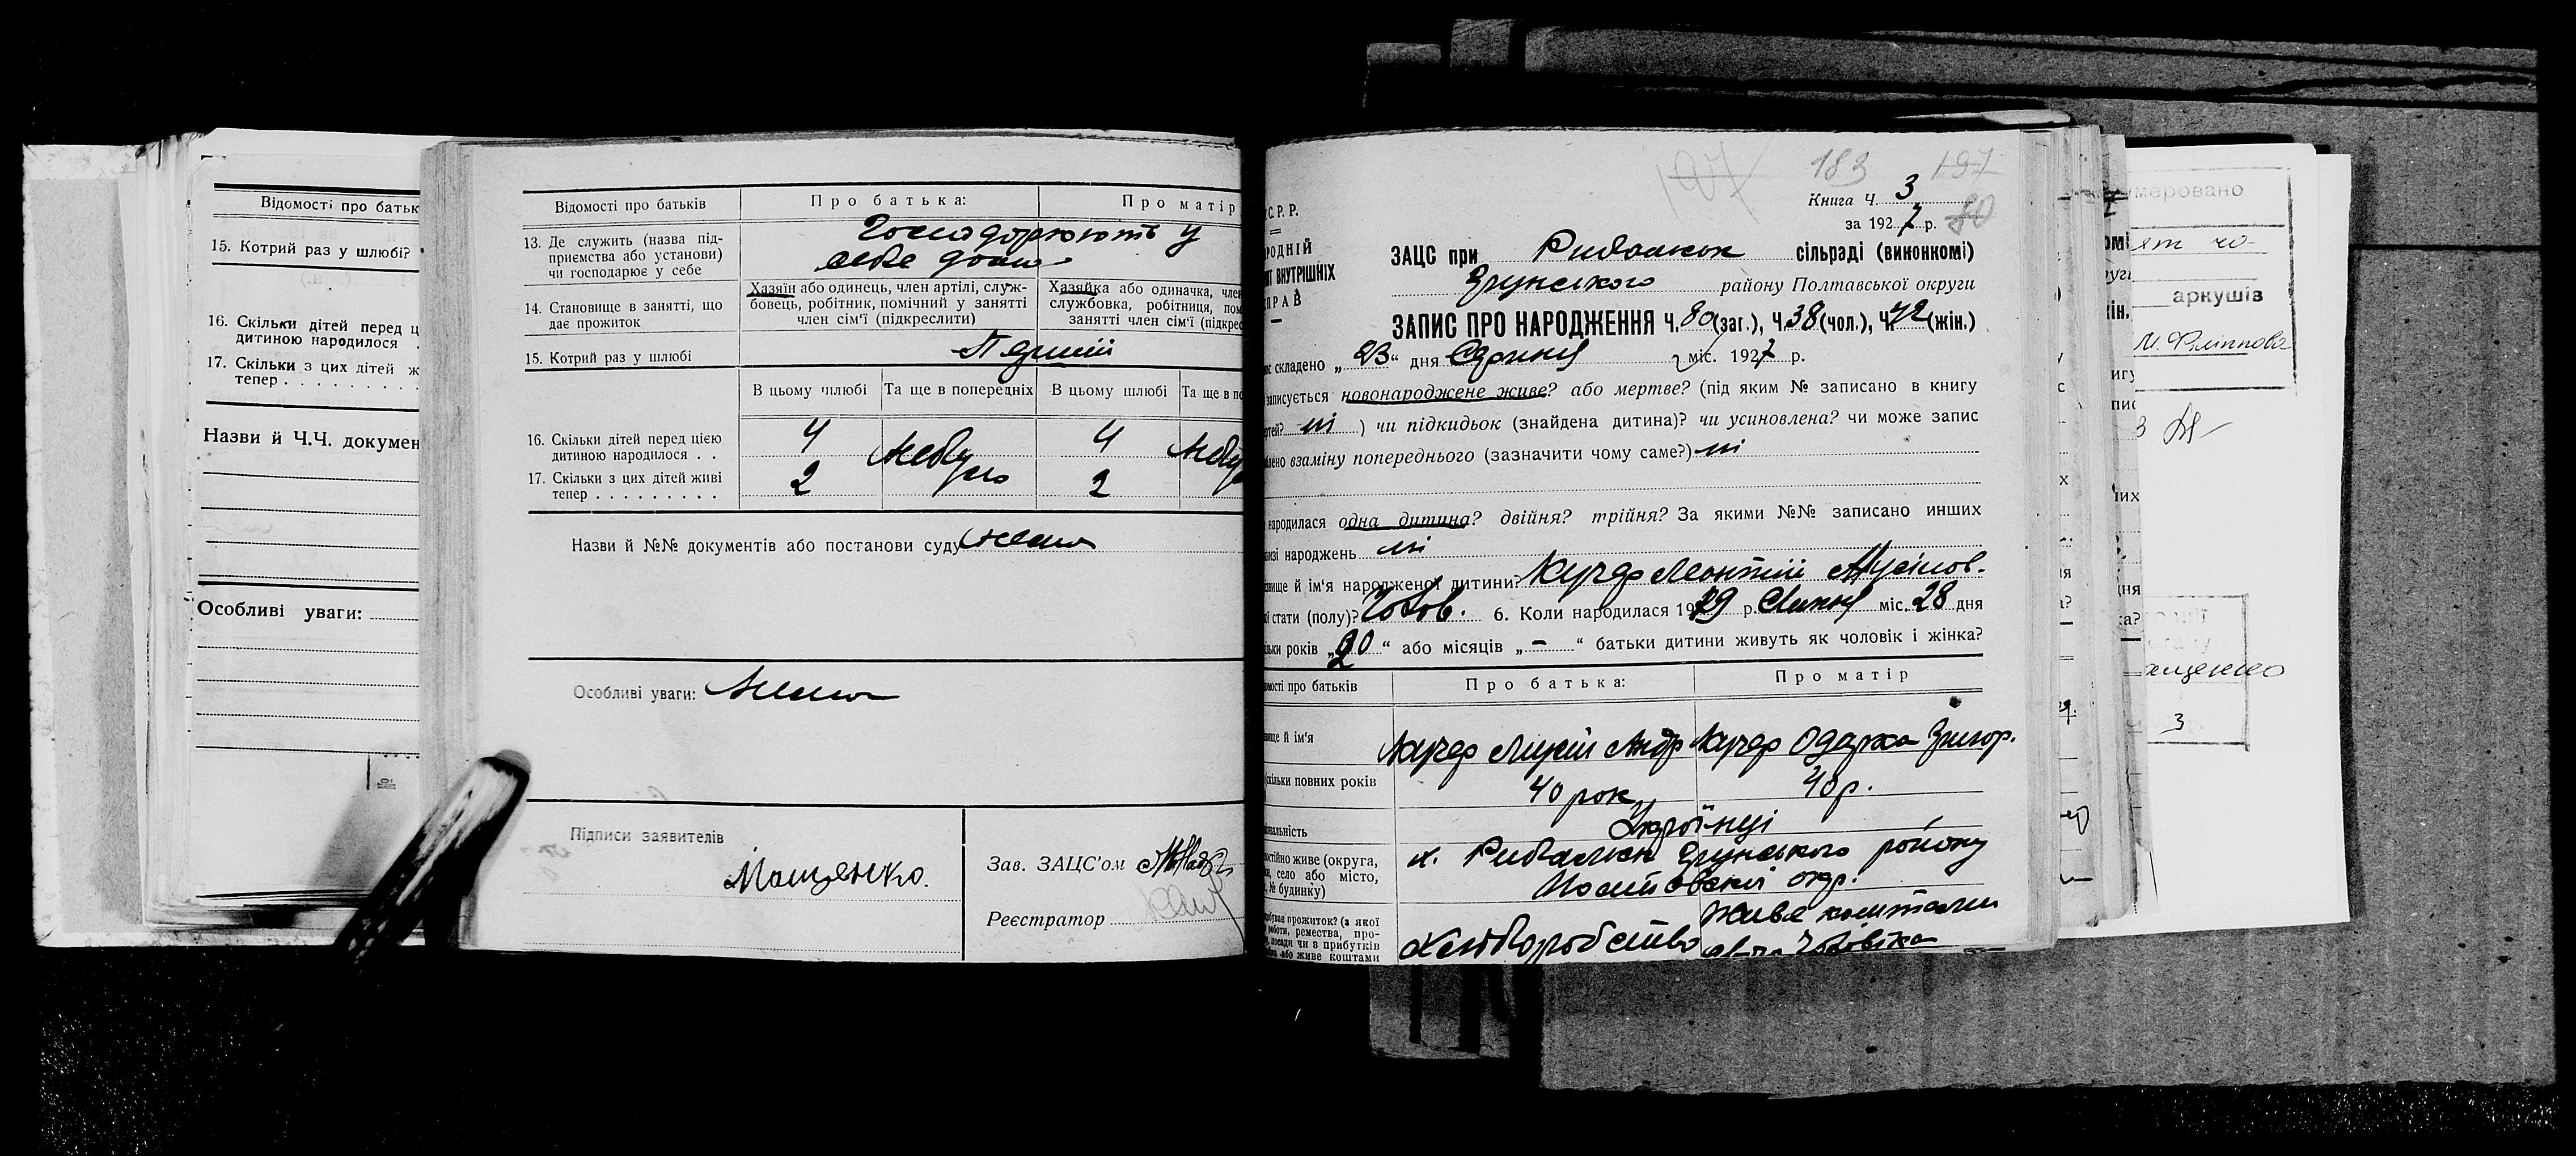 Відомості про батьк
15. Котрий раз у шлюбі?
16. Скільки дітей перед ц
дитиною народилося
17. Скільки з цих дітей ж
тепер
Назви й Ч.Ч. докумен
Особливі уваги:
Відомості про батьків
Про батька:
Про матір
13. Де служить (назва під-
приємства або установи)
чи господарює у себе
Господарюють у
себе дома
14. Становище в занятті, що
дає прожиток
Хазяїн або одинець, член артілі, служ-
бовець, робітник, помічний у занятті
член сім'ї (підкреслити)
Хазяйка або одиначка, член
службовка, робітниця, пом
занятті член сім'ї (підкрес
15. Котрий раз у шлюбі
Перший
В цьому шлюбі
Та ще в попередніх
В цьому шлюбі
Та ще в по
16. Скільки дітей перед цією
дитиною народилося . .
4
4
17. Скільки з цих дітей живі
тепер
2
2
Небу
ло
Небул
Назви й №№ документів або постанови суду нема
Особливі уваги: Нема
Підписи заявителів
Мащенко.
Зав. ЗАЦС'ом
Реєстратор
183 197
Книга Ч. 3
за 1927 р. 80
С.Р.Р.
РОДНІЙ
ВНУТРІШНІХ
ПРАВ
ЗАЦС при сільраді (виконкомі)
Грунського району Полтавської округи
ЗАПИС ПРО НАРОДЖЕННЯ Ч. 80 (заг.), Ч. 38 (чол.), Ч. 42 (жін.)
складено „ 23 “ дня Серпня міс. 1927 р.
записується новонароджене живе? або мертве? (під яким № записано в книгу
ні ) чи підкидьок (знайдена дитина)? чи усиновлена? чи може запис
взаміну попереднього (зазначити чому саме?) ні
народилася одна дитина? двійня? трійня? За якими №№ записано инших
народжень ні
й ім'я народженої дитини? Кучер
стати (полу)? Чолов. 6. Коли народилася 19 р. Липня міс. 28 дня
років „ 20 “ або місяців „ — “ батьки дитини живуть як чоловік і жінка?
про батьків
Про батька:
Про матір
й ім'я
Кучер Андр
Кучер Одарка Григор.
скільки повних років
40 рок
40 р.
Українці
живе (округа,
село або місто,
№ будинку)
х. Грунського району
окр.
прожиток? (з якої
роботи, ремества, про-
посади чи в прибутків
або живе коштами
Хліборобство
Живе коштами
чоловіка
меровано
аркушів
М. Філіппова
3